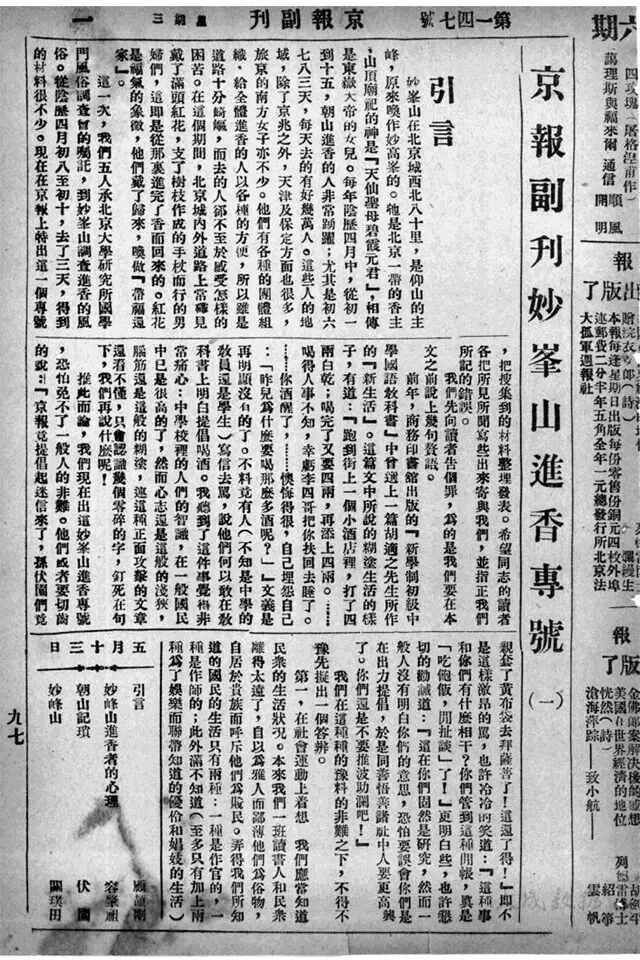 第一四七號
京報副刊
星期三
一
京報副刊妙峯山進香專號(一)
引言
妙峯山在北京城西北八十里，是仰山的主
峰，原來喚作妙高峯的。牠是北京一帶的香主
，山頂廟祀的神是『天仙聖母碧霞元君』，相傳
是東嶽大帝的女兒。每年陰歷四月中，從初一
到十五，朝山進香的人非常踴躍；尤其是初六
七八三天，每天去的有好幾萬人。這些人的地
域，除了京兆之外，天津及保定方面也很多，
旅京的南方女子亦不少。他們有各種的團體組
織，給全體進香的人以各種的方便，所以雖是
道路十分崎嶇，而去的人卻不至於感受怎樣的
困苦。在這個期間，北京城內外道路上常釋見
戴了滿頭紅花，支了樹枝作成的手杖而行的男
婦們，這即是從那裏進完了香而回來的。紅花
是福氣的象徵，他們戴了歸來，喚做『帶福還
家』。
這一次，我們五人承北京大學研究所國學
門風俗調查會的囑託，到妙峯山調查進香的風
俗。從陰歷四月初八至初十，去了三天，得到
的材料很不少。現在在京報上特出這一個專號
，把搜集到的材料整理發表。希望同志的讀者
各把所見所聞寫些出來寄與我們，並指正我們
所記的錯誤。
我們先向讀者告個罪，爲的是我們要在本
文之前說上幾句贅語。
前年，商務印書館出版的『新學制初級中
學國語敎科書』中曾選上一篇胡適之先生所作
的『新生活』。這篇文中所說的糊塗生活的樣
子，有道：『跑到街上一個小酒店裡，打了四
兩白乾；喝完了又要四兩，再添上四兩。……
喝得人事不知，幸虧李四哥把你扶回去睡了。
……你酒醒了，……懊悔得很，自己埋怨自己
：「昨兒爲什麼要喝那麼多酒呢？」』文義是
再明顯沒有的了。不料竟有人(不知是中學的
敎員還是學生)寫信去罵，說他們何以敢在敎
科書上明白提倡喝酒。我聽到了這件事覺得非
常痛心：中學校裡的人們的智識，在一般國民
中已是很高的了，然而心志還是這般的淺狹，
腦筋還是這般的糊塗，連這種正面攻擊的文章
還看不懂，只會認識幾個零碎的字，釘死在句
下，我們再說什麼呢！
推此而論，我們現在出這妙峯山進香專號
，恐怕免不了一般人的非難。他們或者要切齒
的說：『京報竟提倡起迷信來了，孫伏園們竟
親套了黃布袋去拜薩菩了！這還了得！』即不
是這樣激昂的罵，也許冷冷的笑道：『這種事
和你們有什麼相干？你們管到這種閒帳，眞是
「吃飽飯，閒扯談」了！』更明白些，也許懇
切的勸誡道：『這在你們固然是研究，然而一
般人沒有明白你們的意思，恐怕要誤會你們是
在出力提倡，於是同善悟善諸社中人要更高興
了。你們還是不要推波助瀾吧！』
我們在這種種的豫料的非難之下，不得不
豫先擬出一個答辨。
第一，在社會運動上着想　我們應當知道
民衆的生活狀況。本來我們一班讀書人和民衆
離得太遠了，自以爲雅人而鄙薄他們爲俗物，
自居於貴族而呼斥他們爲賤民。弄得我們所知
道的國民的生活只有兩種：一種是作官的，一
種是作師的；此外滿不知道(至多只有加上兩
種爲了娛樂而聯帶知道的優伶和娼妓的生活)
五月十三日
引言　顧頡剛
妙峰山進香者的心理　容肇祖
朝山記瑣　伏園
妙峰山　關璞田
九七
六期
萬理斯與福來爾　通信
順風
開明
報
出版了
本報每逢星期日出版每份零售銅元四枚外埠
連郵費二分半年五角全年一元總發行所北京法
大孤軍週報社
報
版了
佛郎案解決後的感想
美國在世界經濟的地位
恍然(詩)
滄海萍踪——致小航——
雲帆